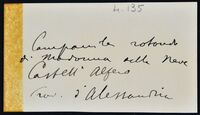 L. 135
Campanile rotondo
di Madonna della Neve
Castell' Alfero
Prov. d'Alessandria